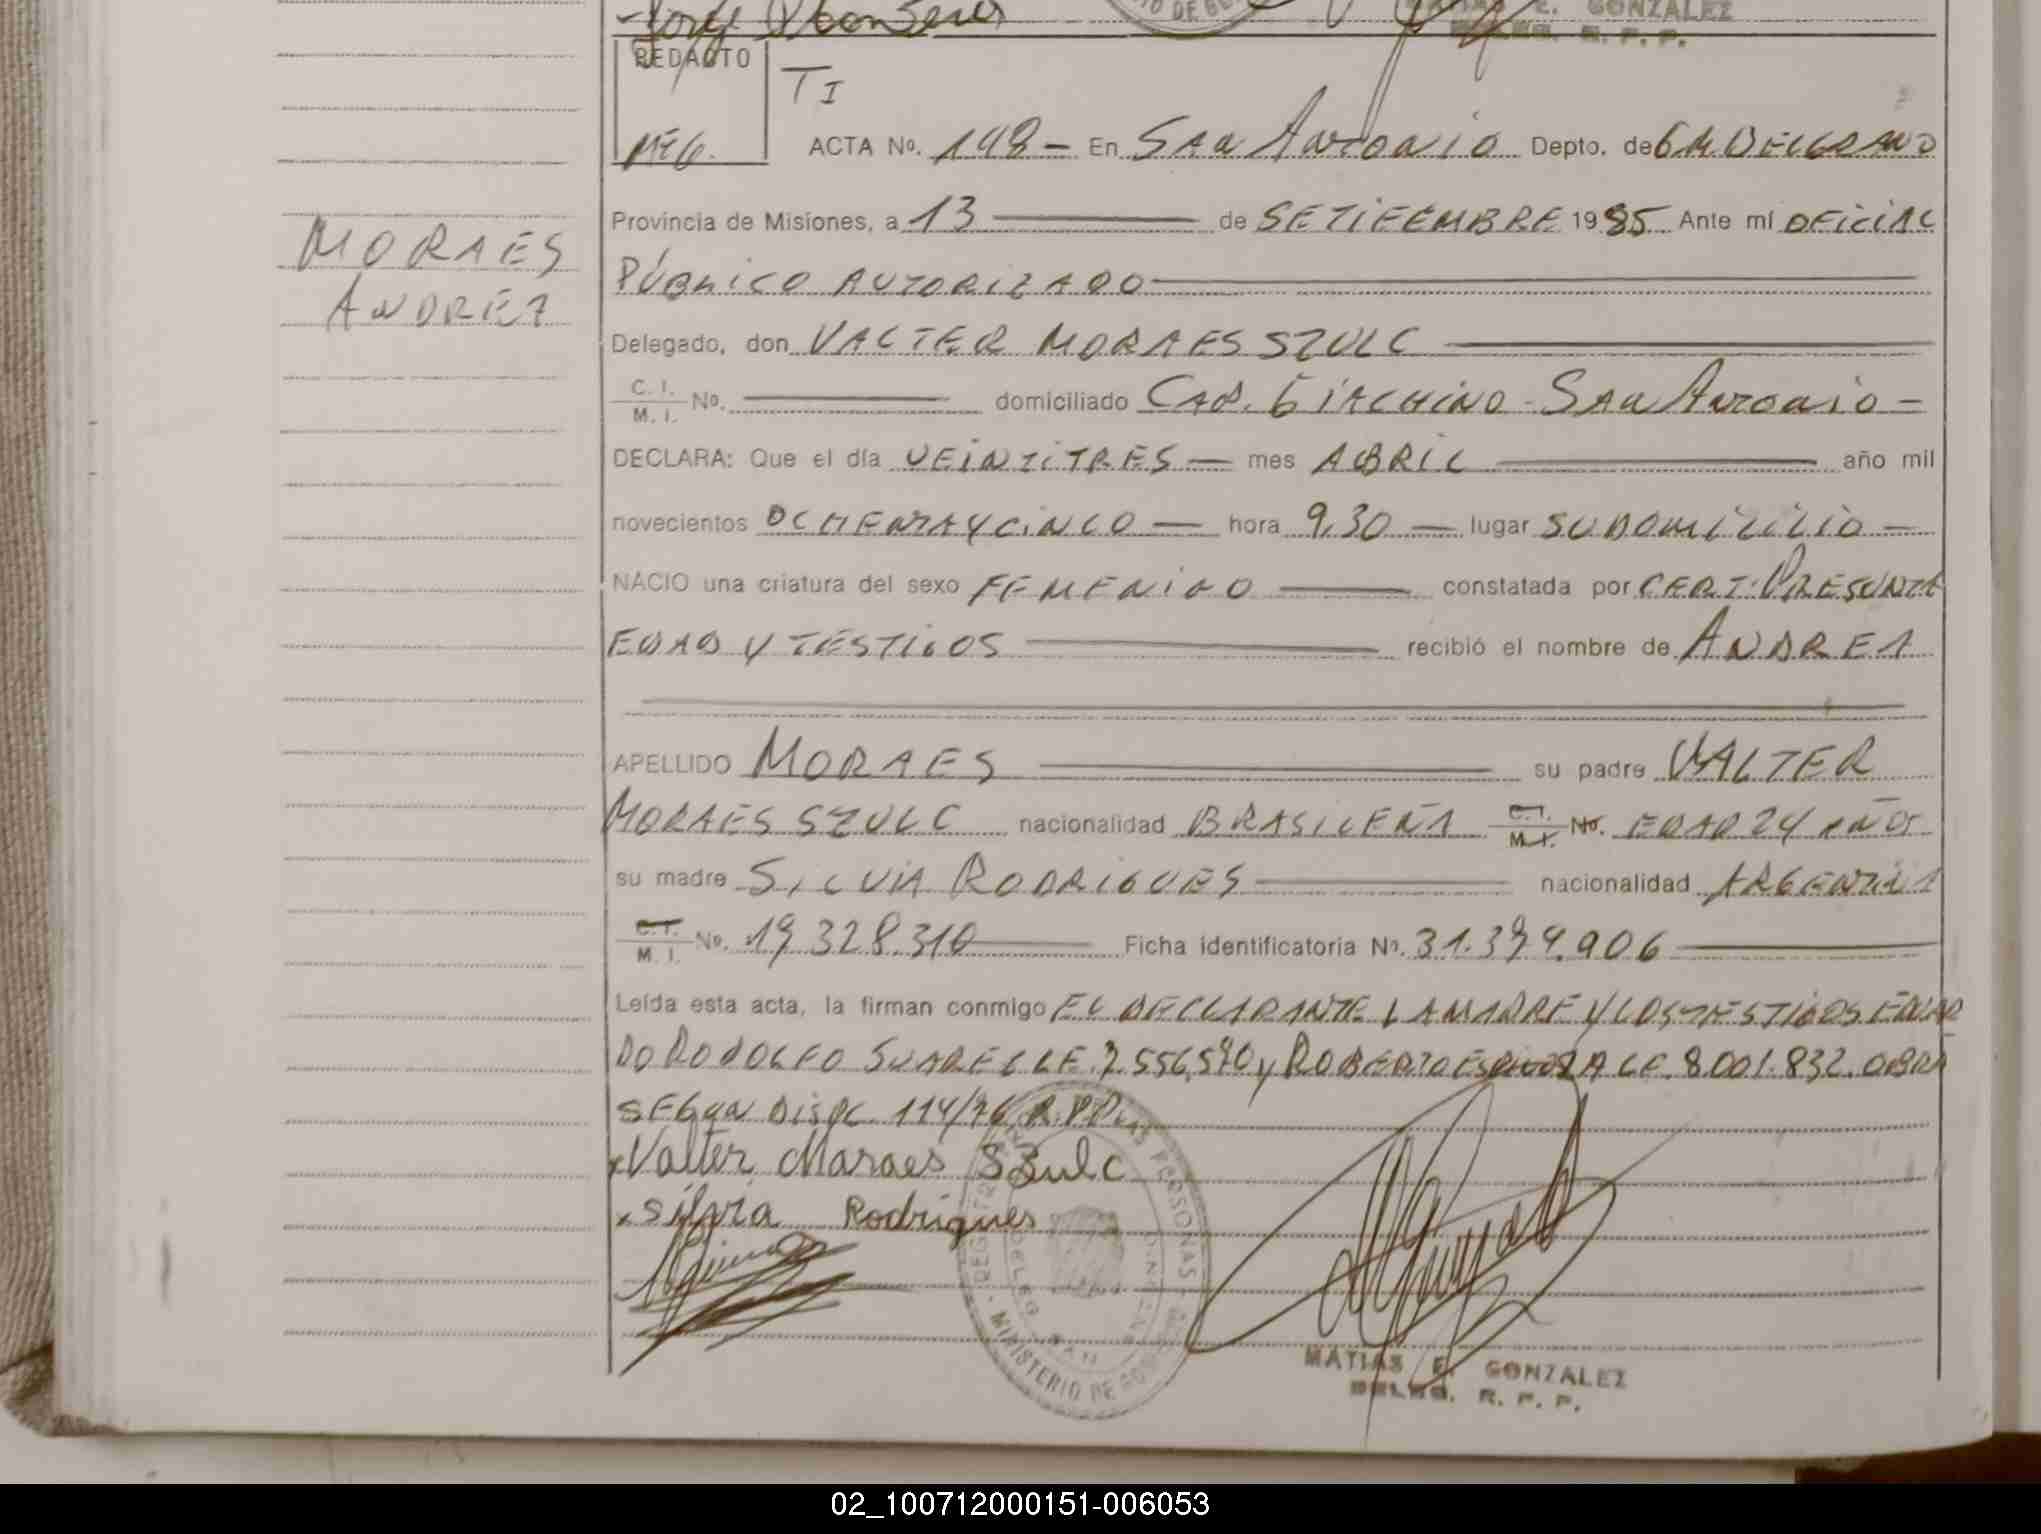 Jorge
GONZALEZ
R. P. P.
REDACTO
TI
ACTA Nº. 148 - En San Antonio Depto. de G M BELGRANO
Provincia de Misiones, a 13 de SETIEEMBRE 1985 Ante mí OFICIAL
PÚBLICO AUTORIZADO
MORAES
ANDREA
Delegado, don VALTER MORAES SZULC
C. I. / M. I. Nº. domiciliado CAP. GIACHINO - San Antonio -
DECLARA: Que el día VEINTITRES - mes ABRIL año mil
novecientos OCHENTA Y CINCO - hora 9,30 - lugar SU DOMICILIO -
NACIO una criatura del sexo FEMENINO constatada por CERT. PRESUNTA
EDAD Y TESTIGOS recibió el nombre de ANDREA
APELLIDO MORAES su padre VALTER
MORAES SZULC nacionalidad BRASILEÑA C. I. / M. I. Nº. EDAD 24 AÑOS
su madre SILVIA RODRIGUES nacionalidad ARGENTINA
C. I. / M. I. Nº. 19.328.310 Ficha identificatoria Nº. 31.394.906
Leída esta acta, la firman conmigo EL DECLARANTE LA MADRE Y LOS TESTIGOS EDUAR
DO RODOLFO SUAREZ LE. 7.556.570 y ROBERTO ESPINOZA LE. 8.001.832. OBRA
SEGUN DISPC. 114/76 R.P.P.
x Valter Maraes SZulc
x Silvia Rodrigues
REGISTRO DE LAS PERSONAS
MINISTERIO DE GOB
MATIAS E. GONZALEZ
DELEG. R. P. P.
02_100712000151-006053